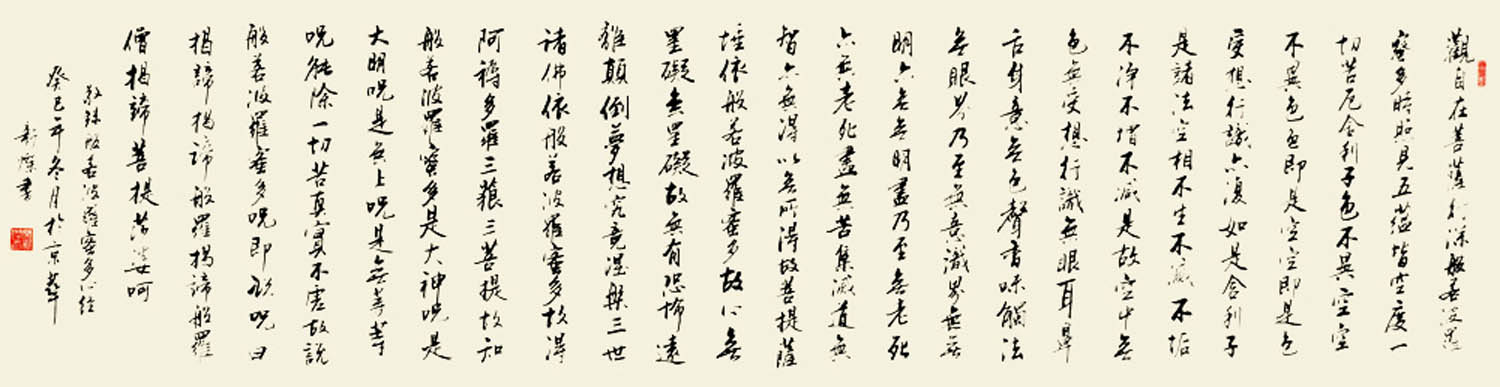 觀自在菩薩行深般若波羅
蜜多時照見五蘊皆空度一
切苦厄舍利子色不異空空
不異色色即是空空即是色
受想行識亦復如是舍利子
是諸法空相不生不滅不垢
不淨不增不减是故空中無
色無受想行識無眼耳鼻
舌身意無色聲香味觸法
無眼界乃至無意識界無無
明亦無無明盡乃至無老死
亦無老死盡無苦集滅道無
智亦無得以無所得故菩提薩
埵依般若波羅蜜多故心無
罣礙無罣礙故無有恐怖遠
離顛倒夢想究竟涅槃三世
諸佛依般若波羅蜜多故得
阿耨多羅三藐三菩提故知
般若波羅蜜多是大神呪是
大明呪是無上呪是無等等
呪能除一切苦真實不虛故說
般若波羅蜜多呪即說呪曰
揭諦揭諦般羅揭諦般羅
僧揭諦菩提薩婆呵
敬録般若波羅蜜多心經
癸巳年冬月於京華
書